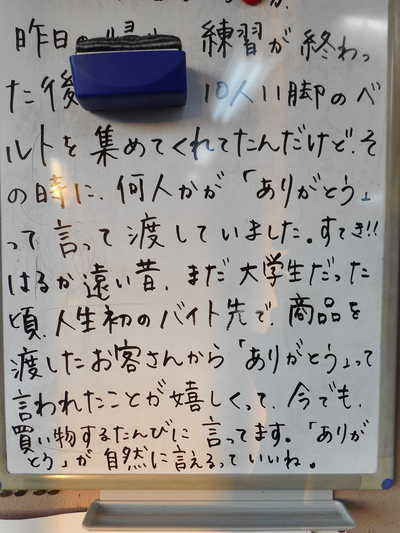 昨日 練習が終わっ
た後 10人11脚のベ
ルトを集めてくれてたんだけど、そ
の時に、何人かが「ありがとう」
って言って渡していました。すてき!!
はるか遠い昔、まだ大学生だった
頃、人生初のバイト先で、商品を
渡したお客さんから「ありがとう」って
言われたことが嬉しくって、今でも、
買い物するたんびに言ってます。「ありが
とう」が自然に言えるっていいね。